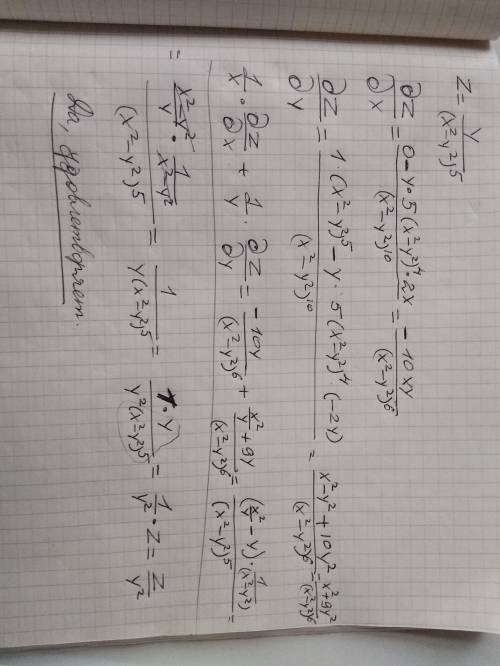 z = y/(x²-y²)⁵
∂z/∂x = (0 - y·5(x²-y²)⁴·2x)/(x²-y²)¹⁰ = -10xy/(x²-y²)⁶
∂z/∂y = (1(x²-y²)⁵ - y·5(x²-y²)⁴·(-2y))/(x²-y²)¹⁰ = (x²-y²+10y²)/(x²-y²)⁶ = (x²+9y²)/(x²-y²)⁶
1/x · ∂z/∂x + 1/y · ∂z/∂y = -10y/(x²-y²)⁶ + (x²/y + 9y)/(x²-y²)⁶ = ((x²/y - y)·1/(x²-y²))/(x²-y²)⁵ =
= ((x²-y²)/y · 1/(x²-y²))/(x²-y²)⁵ = 1/(y(x²-y²)⁵) = 1·y/(y²(x²-y²)⁵) = 1/y² · z = z/y²
Да, удовлетворяет.